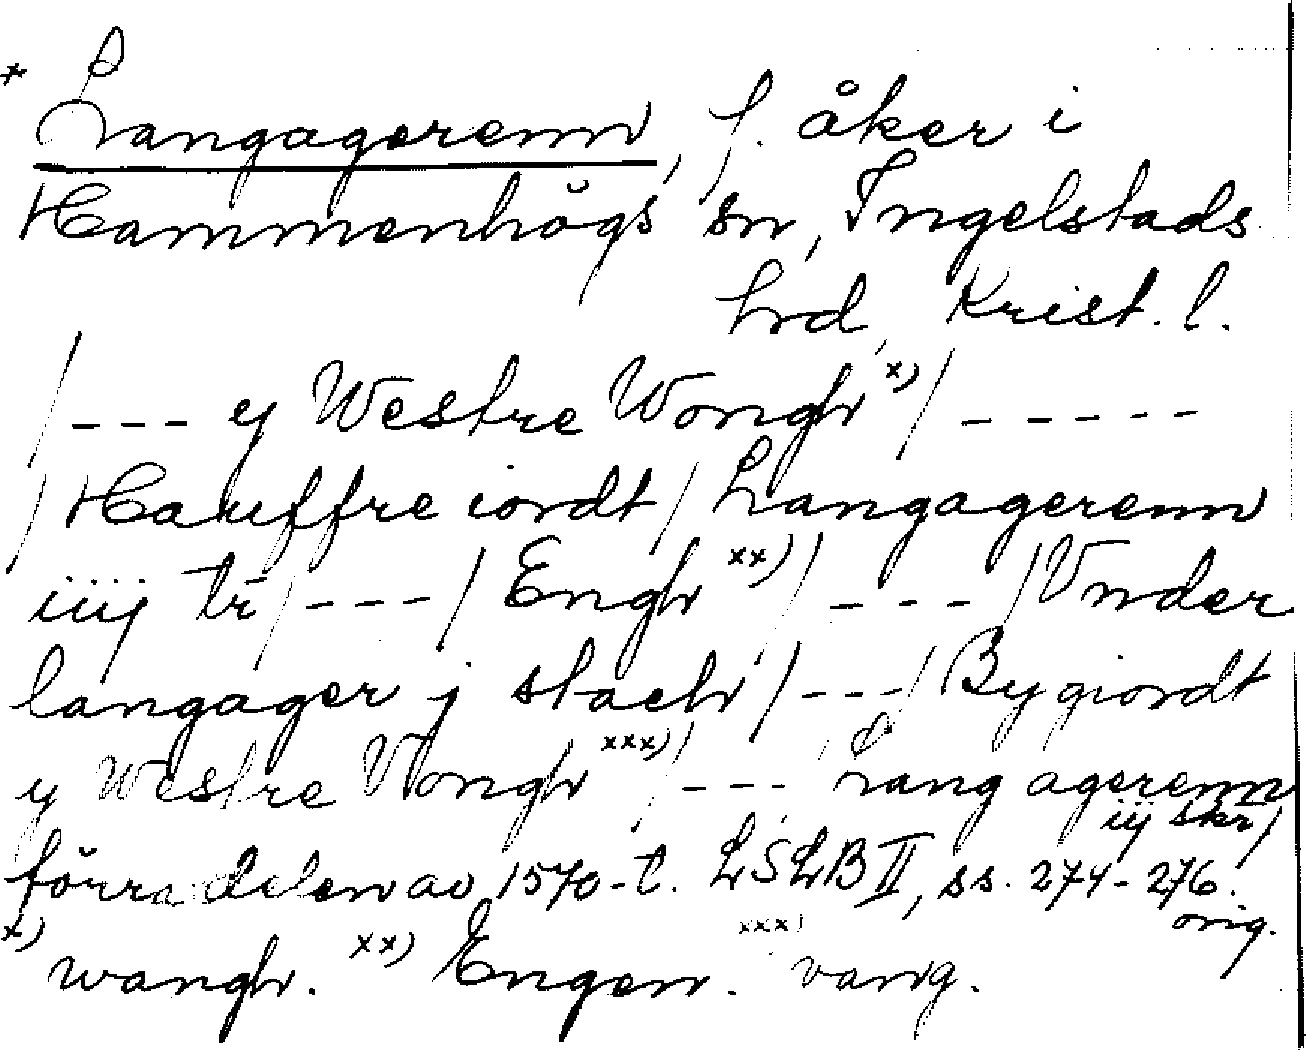 * Langagerenn, f. åker i
Hammenhögs sn, Ingelstads
hd, Krist. l.
/--- y Westre Wongh x) / -----
/ Haruffre iordt / Langagerenn
iiij tr / --- / Engh xx) / --- / Vnder
langager j stach / --- / By giordt
y Westre Vongh xxx) / --- Lang agerenn
iij skr /
förra delen av 1570-t. LSLB II, ss. 274-276.
orig.
x) wangh. xx) Engen. xxx) vang.